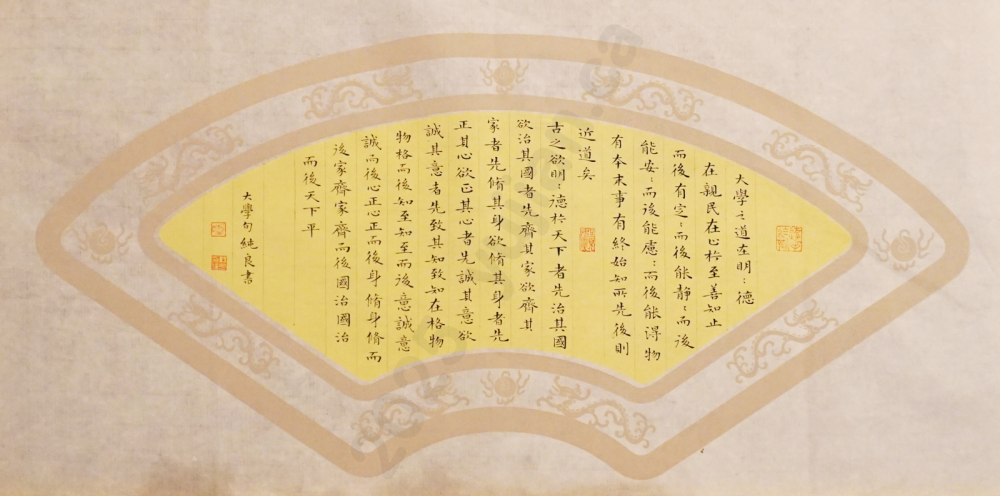 大學之道在明〻德
在親民在止於至善知止
而後有定〻而後能静〻而後
能安〻而後能慮〻而後能得物
有本末事有終始知所先後則
近道矣
古之欲明〻德於天下者先治其國
欲治其國者先齊其家欲齊其
家者先脩其身欲脩其身者先
正其心欲正其心者先誠其意欲
誠其意者先致其知致知在格物
物格而後知至知至而後意誠意
誠而後心正心正而後身脩身脩而
後家齊家齊而後國治國治
而後天下平
大學句純良書